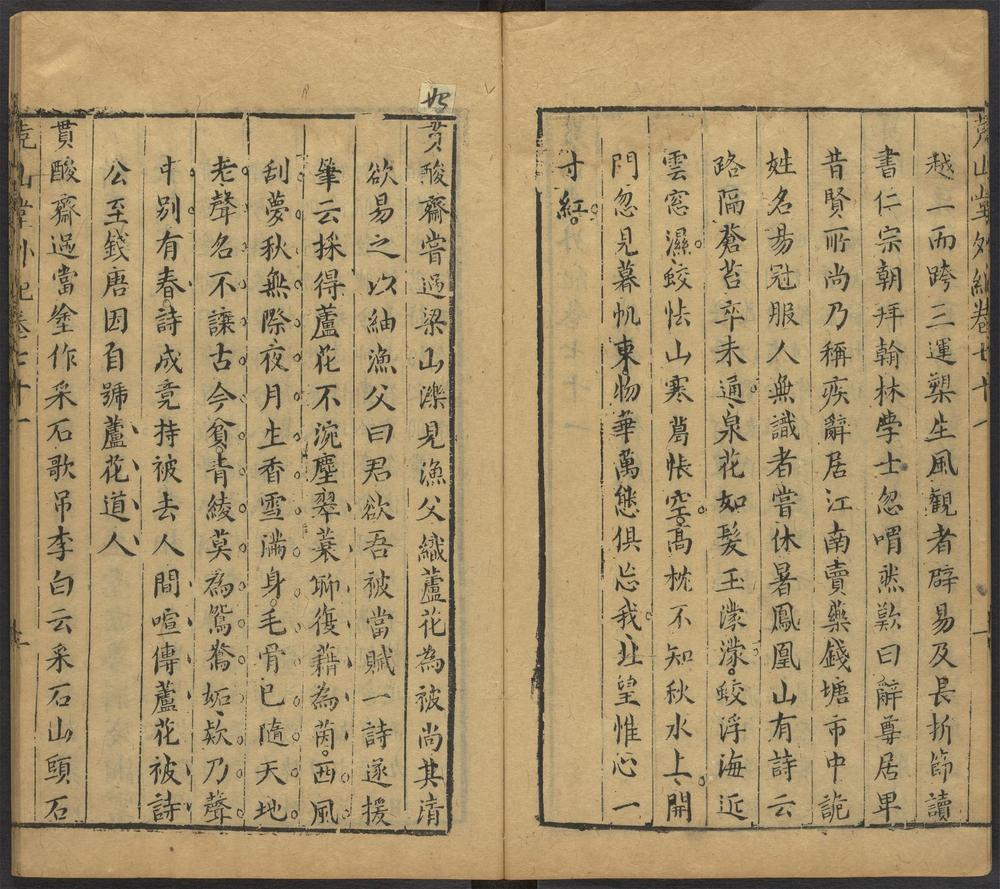 堯山堂外紀卷七十一
越一而跨三運槊生風觀者辟易及長折節讀
書仁宗朝拜翰林學士忽喟然歎曰辭尊居卑
昔賢所尚乃稱疾辭居江南賣藥錢塘市中詭
姓名昜冠服人無識者嘗休暑鳳凰山有詩云
路隔蒼苔卒未通泉花如髮玉濛濛蛟浮海近
雲窓濕蛟怯山寒葛帳空高枕不知秋水上開
門忽見暮帆東物華萬態俱忘我北望惟心一
寸紅
貫酸齋嘗過梁山濼見漁父織蘆花為被尚其清
欲易之以紬漁父曰君欲吾被當賦一詩遂援
筆云採得蘆花不涴塵翠蓑聊復藉為茵西風
刮夢秋無際夜月生香雪滿身毛骨已隨天地
老聲名不讓古今貧青綾莫為鴛鴦妬欸乃聲
中别有春詩成竟持被去人間喧傳蘆花被詩
公至錢唐因自號蘆花道人
貫酸齋過當塗作采石歌吊李白云采石山頭石
堯山堂外紀卷七十一